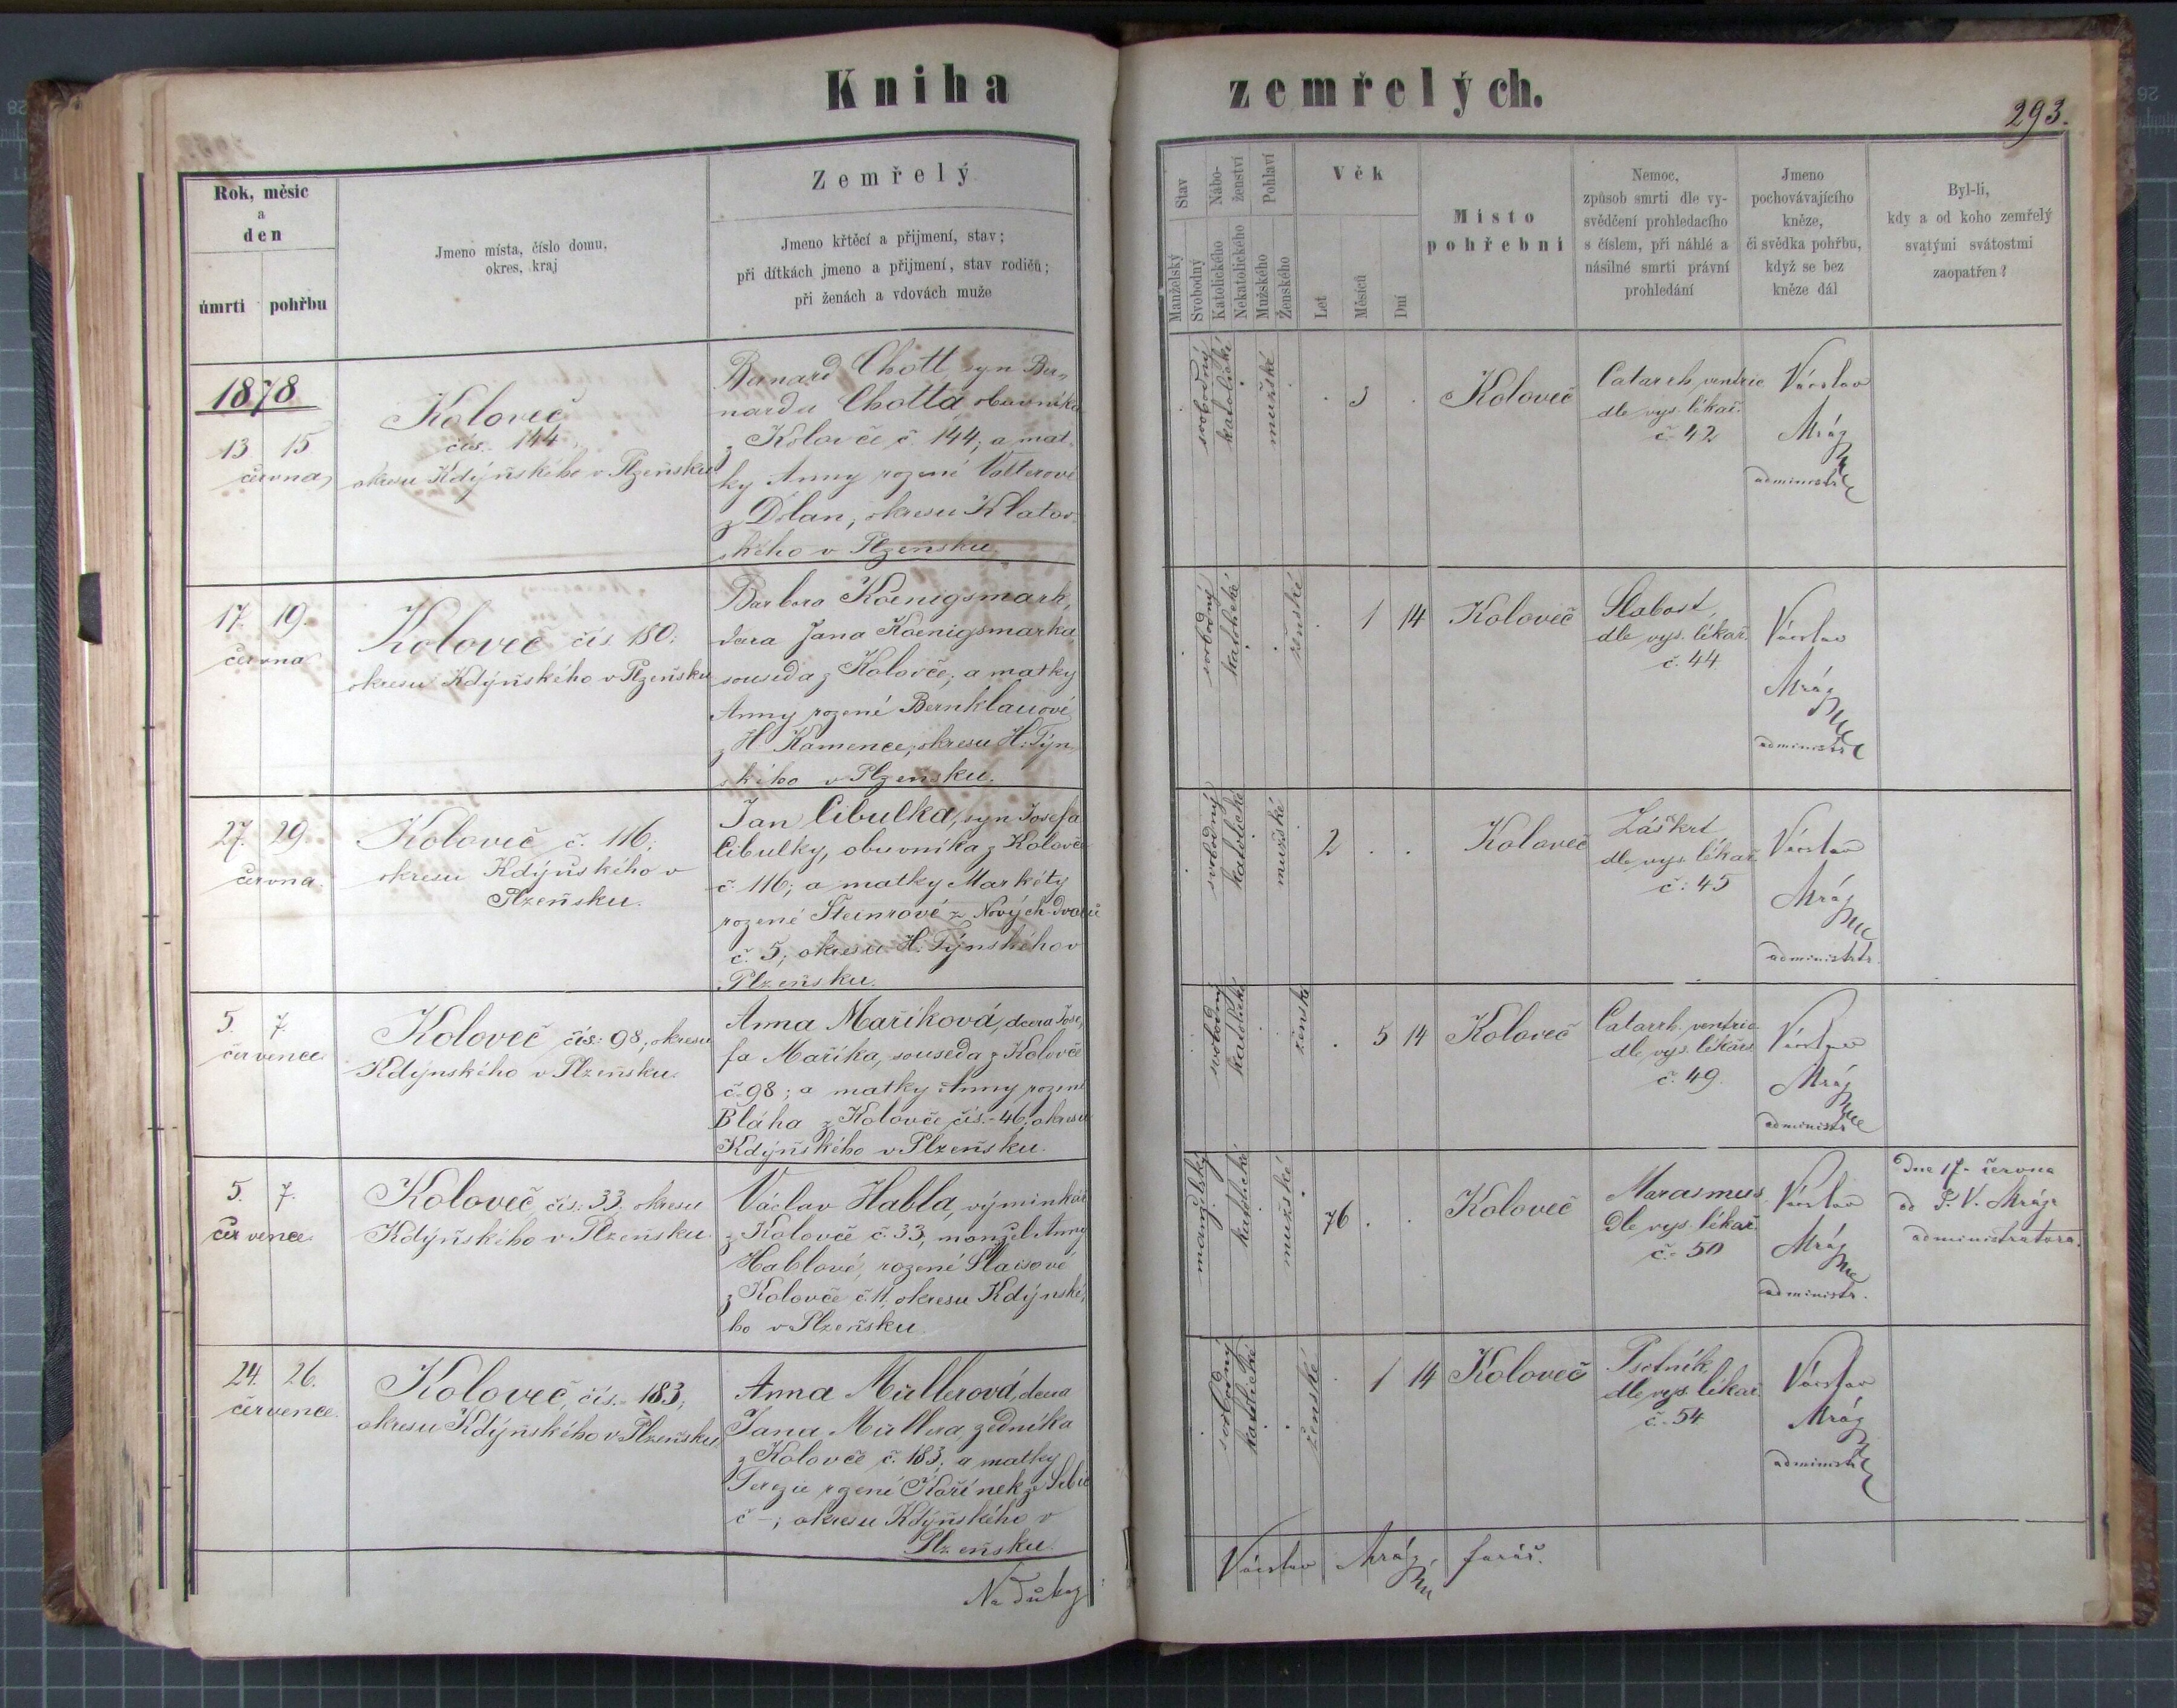 Kniha zemřelých.
293.
Rok, měsíc
a
den
úmrtí pohřbu
Jmeno místa, číslo domu,
okres, kraj
Zemřelý
Jmeno křtěcí a přijmení, stav;
při dítkách jmeno a přijmení, stav rodičů;
při ženách a vdovách muže
Stav
Manželský
Svobodný
Nábo-
ženství
Katolického
Nekatolického
Pohlaví
Mužského
Ženského
Věk
Let
Měsíců
Dní
Místo
pohřební
Nemoc,
způsob smrti dle vy-
svědčení prohledacího
s číslem, při náhlé a
násilné smrti právní
prohledání
Jmeno
pochovávajícího
kněze,
či svědka pohřbu,
když se bez
kněze dál
Byl-li,
kdy a od koho zemřelý
svatými svátostmi
zaopatřen?
1878
13 15
června
Koloveč
čís. 144
okresu Kdýňského v Plzeňsku
Bernard Chott, syn Ber-
narda Chotta, obuvníka
z Kolovče č. 144; a mat-
ky Anny rozené Valterové
z Dolan, okresu Klatov-
ského v Plzeňsku.
svobodný
katolické
mužské
3
Koloveč
Catarrh ventric
dle vys. lékař.
č. 42
Václav
Mráz
administr
17. 19.
června
Koloveč čís. 180;
okresu Kdýňského v Plzeňsku
Barbora Koenigsmark,
dcera Jana Koenigsmarka,
souseda z Kolovče; a matky
Anny rozené Bernklauové
z H. Kamence, okresu H. Týn
ského v Plzeňsku.
svobodný
katolické
ženské
1 14
Koloveč
Slabost,
dle vys. lékař.
č. 44
Václav
Mráz
administr
27. 29.
června.
Koloveč č. 116;
okresu Kdýňského v
Plzeňsku.
Jan Cibulka, syn Josefa
Cibulky, obuvníka z Kolovče
č. 116; a matky Markéty
rozené Steinrové z Nových dvorů
č. 5; okresu H. Týnského v
Plzeňsku.
svobodný
katolické
mužské
2
Koloveč
Záškrt,
dle vys. lékař.
č: 45
Václav
Mráz
administr.
5. 7.
července
Koloveč čís: 98; okresu
Kdýnského v Plzeňsku.
Anna Maříková, dcera Jose-
fa Maříka, souseda z Kolovče
č. 98; a matky Anny rozené
Bláha z Kolovče čís.- 46; okresu
Kdýňského v Plzeňsku.
svobodný
katolické
ženské
5 14
Koloveč
Catarrh. ventric
dle vys. lékařs
č. 49.
Václav
Mráz
administr
5. 7.
července
Koloveč, čís: 33; okresu
Kdýňského v Plzeňsku.
Václav Habla, výminkář
z Kolovče č. 33, manžel Anny
Hablové, rozené Slaisové
z Kolovče č. 11, okresu Kdýnské-
ho v Plzeňsku
manželský
katolické
mužské
76
Koloveč
Marasmus
dle vys. lékař.
č. 50
Václav
Mráz
administr.
Dne 17. června
od P. V. Mráze
administratora.
24. 26.
července.
Koloveč, čís.- 183;
okresu Kdýňského v Plzeňsku
Anna Müllerová, dcera
Jana Müllera zedníka
z Kolovče č. 183; a matky
Terezie rozené Kořínek ze
č –; okresu Kdýňského v
Plzeňsku.
svobodný
katolické
ženské
1 14
Koloveč
Psotník,
dle vys. lékař.
č.- 54
Václav
Mráz
administr
Na důkaz
Václav Mráz, farář.